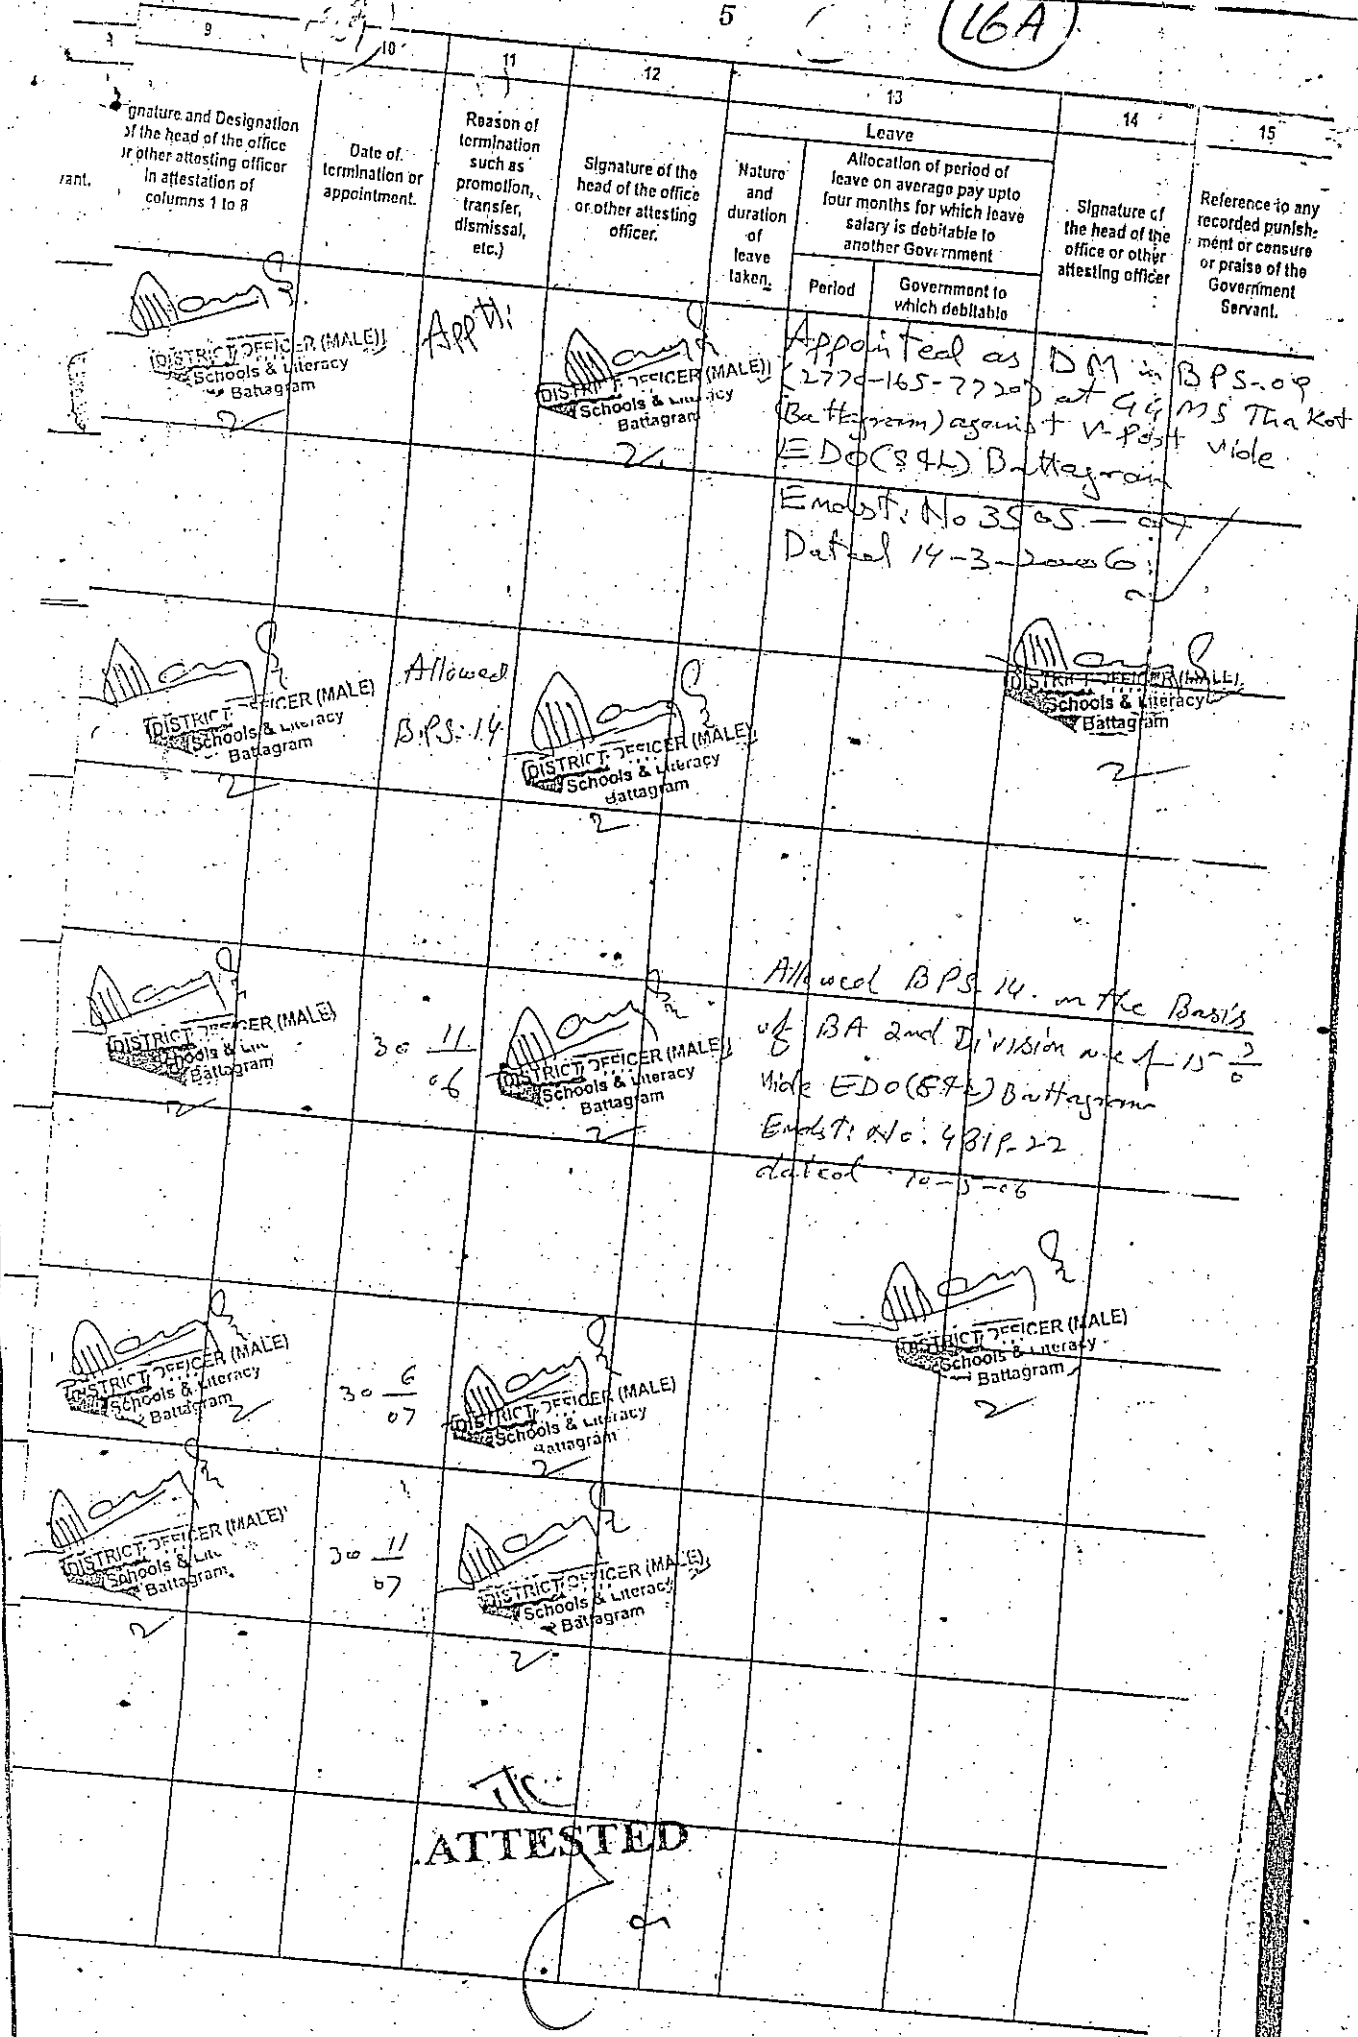 5
16A
9
10
11
12
13
14
15
gnature and Designation
of the head of the office
or other attesting officer
in attestation of
columns 1 to 8
rant.
Date of
termination or
appointment.
Reason of
termination
such as
promotion,
transfer,
dismissal,
etc.)
Signature of the
head of the office
or other attesting
officer.
Leave
Nature
and
duration
of
leave
taken.
Allocation of period of
leave on average pay upto
four months for which leave
salary is debitable to
another Government
Period
Government to
which debitable
Signature of
the head of the
office or other
attesting officer
Reference to any
recorded punish-
ment or censure
or praise of the
Government
Servant.
DISTRICT OFFICER (MALE)
Schools & Literacy
Battagram
Apptt:
DISTRICT OFFICER (MALE)
Schools & Literacy
Battagram
Appointed as DM in BPS-09
(2770-165-7720) at GGMS Thakot
(Battagram) against V-Post vide
EDO(S&L) Battagram
Endst: No 3505-07
Dated 14-3-2006:
DISTRICT OFFICER (MALE)
Schools & Literacy
Battagram
Allowed
B.P.S:14
DISTRICT OFFICER (MALE)
Schools & Literacy
Battagram
DISTRICT OFFICER (MALE)
Schools & Literacy
Battagram
DISTRICT OFFICER (MALE)
Schools & Lit
Battagram
30 11
06
DISTRICT OFFICER (MALE)
Schools & Literacy
Battagram
Allowed BPS-14. on the Basis
of BA 2nd Division w.e.f 15-3
vide EDO(S&L) Battagram
Endst: No: 4819-22
dated
DISTRICT OFFICER (MALE)
Schools & Literacy
Battagram
DISTRICT OFFICER (MALE)
Schools & Literacy
Battagram
30 6
07
DISTRICT OFFICER (MALE)
Schools & Literacy
Battagram
DISTRICT OFFICER (MALE)
Schools & Lit
Battagram
30 11
07
DISTRICT OFFICER (MALE)
Schools & Literacy
Battagram
ATTESTED